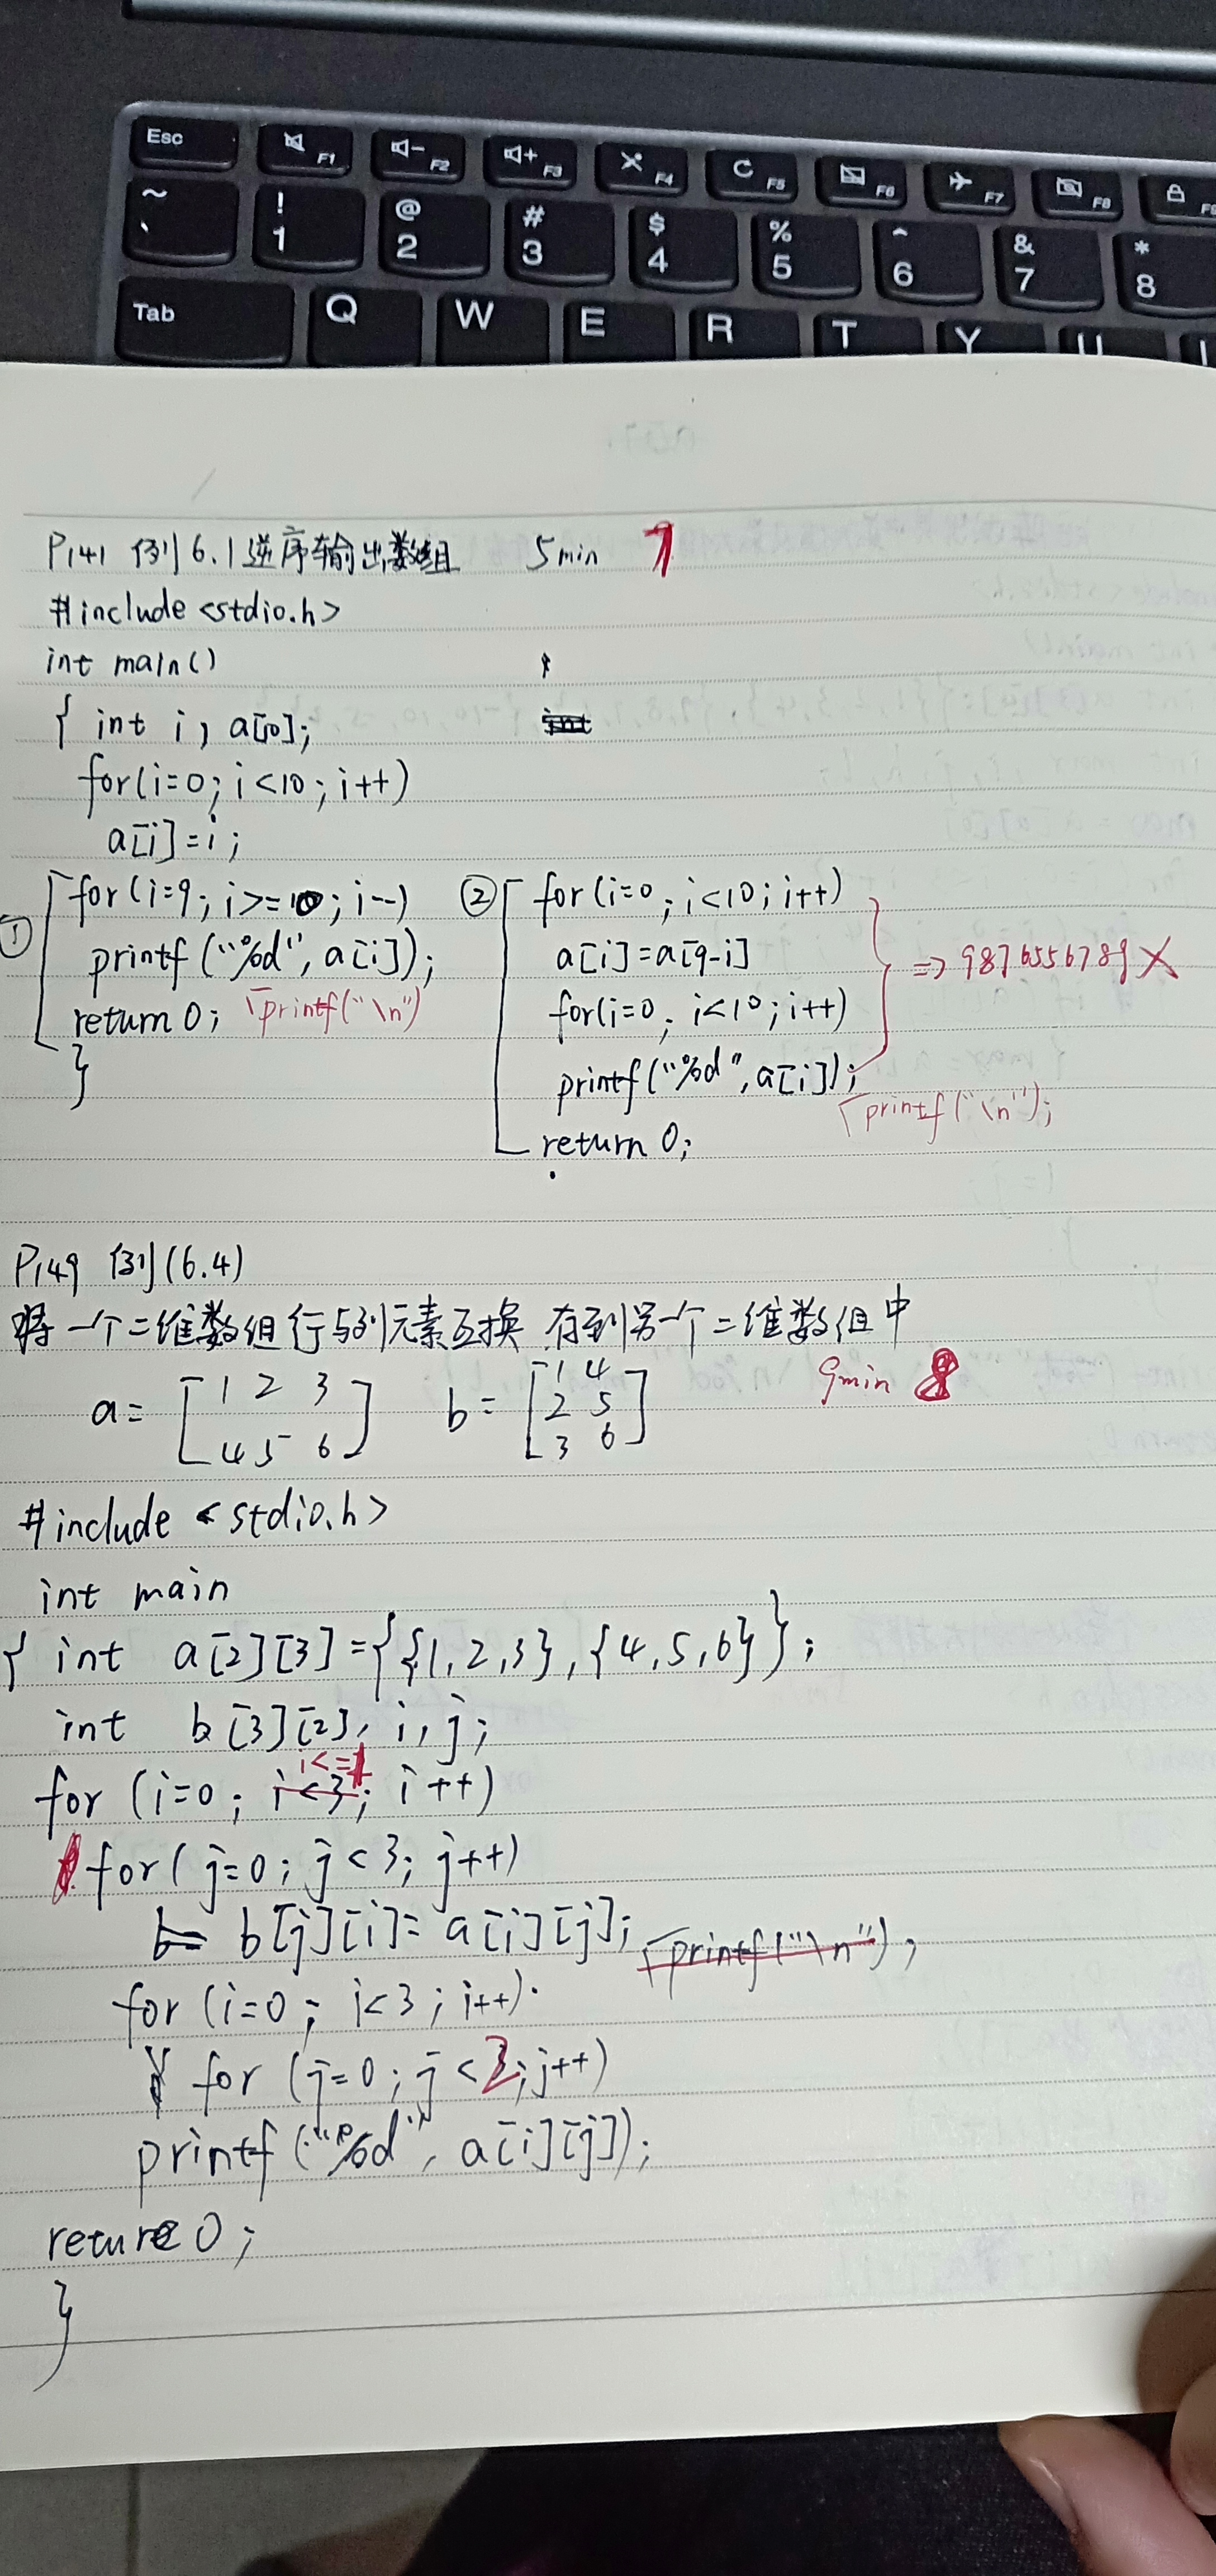 Esc F1 F2 F3 F4 F5 F6 F7 F8 F9
~ ` ! 1 @ 2 # 3 $ 4 % 5 ^ 6 & 7 * 8
Tab Q W E R T Y U I
P141 例6.1逆序输出数组 5min 1
#include <stdio.h>
int main()
{ int i, a[10];
int
for(i=0; i<10; i++)
a[i]=i;
① for(i=9; i>=0; i--)
printf("%d", a[i]);
return 0; printf("\n")
}
② for(i=0; i<10; i++)
a[i]=a[9-i]
for(i=0; i<10; i++)
printf("%d", a[i]);
printf("\n");
return 0;
=> 9876556789 ×
P149 例(6.4)
将一个二维数组行与列元素互换 存到另一个二维数组中
9min 8
a= [1 2 3
4 5 6]
b= [1 4
2 5
3 6]
#include <stdio.h>
int main
{ int a[2][3]={{1,2,3},{4,5,6}};
int b[3][2], i, j;
i<=1
for (i=0; i<3; i++)
for(j=0; j<3; j++)
b= b[j][i]=a[i][j]; printf("\n");
for (i=0; i<3; i++)
{ for (j=0; j<2; j++)
printf("%d", a[i][j]);
return 0;
}